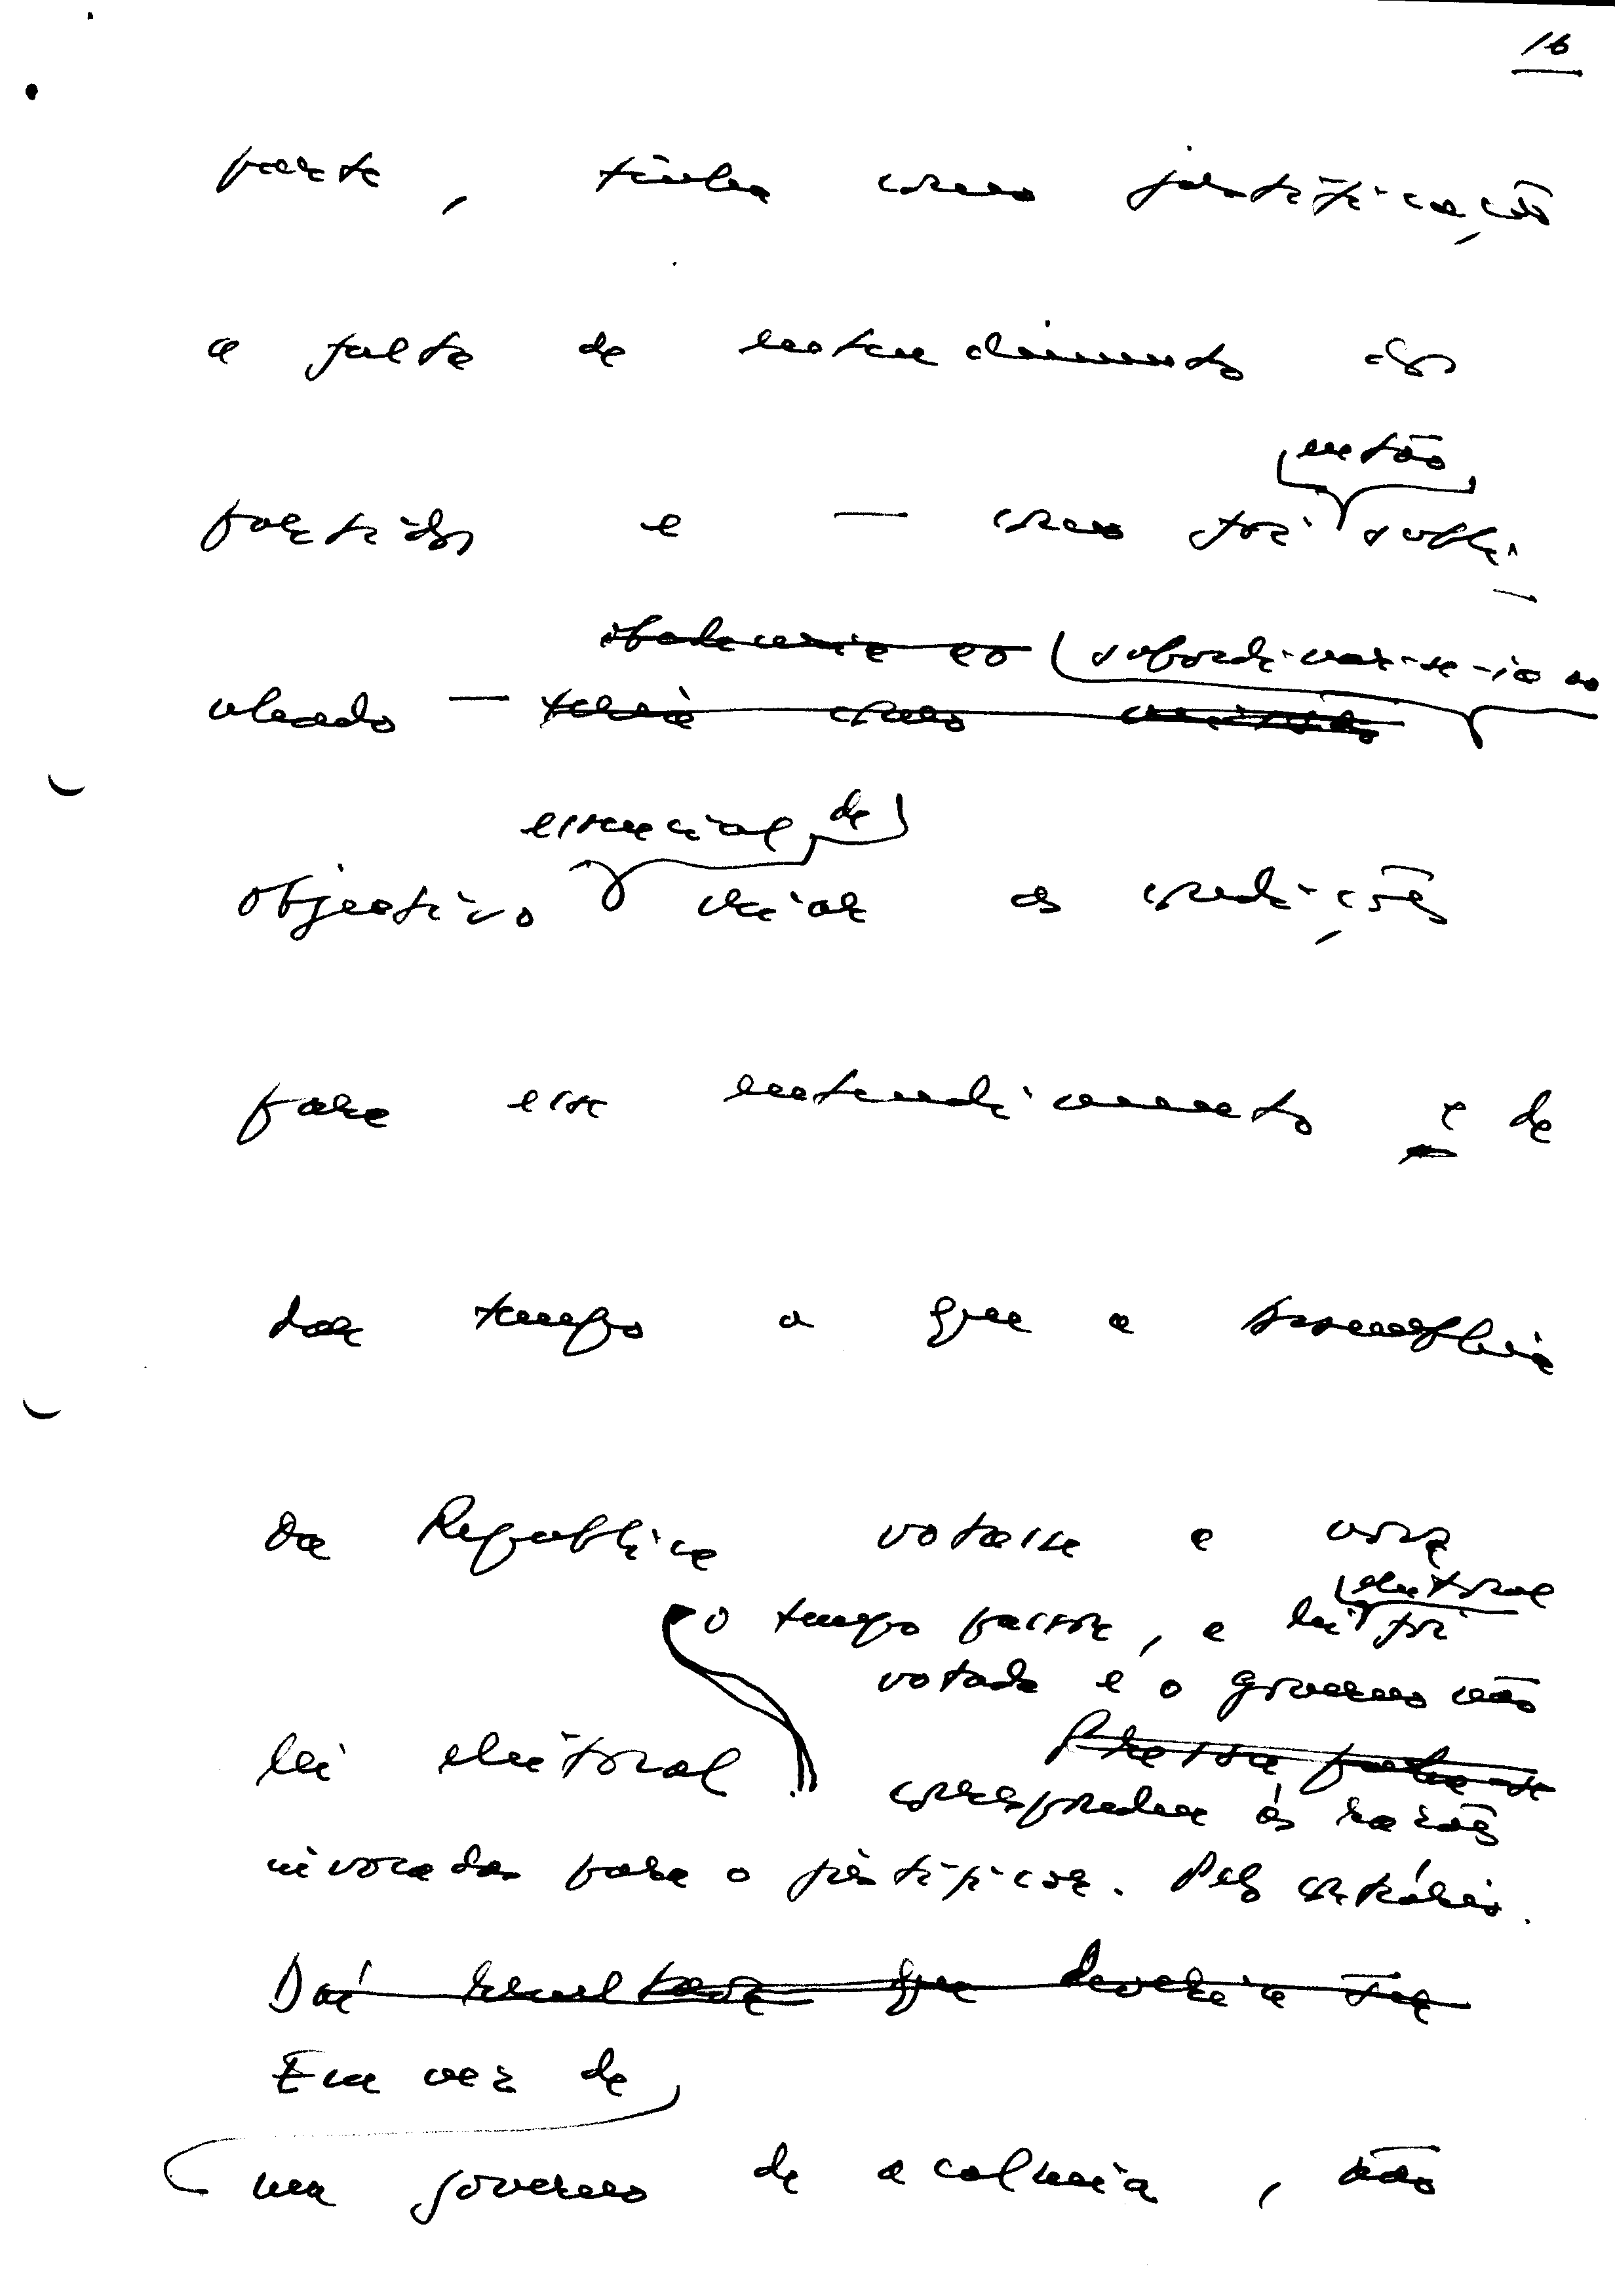 16
parte, tinha como justificação
a falta de entendimento dos
então
partidos e — como foi subli-
obedeceria ao subordinar-se-ia ao
nhado — teria como
essencial de
objectivo criar as condições
para esse entendimento e de
dar tempo a que a Assembleia
da República votasse a nova
eleitoral
o tempo passou, a lei foi
votada e o governo não
lei eleitoral.
correspondeu às razões
invocadas para o justificar. Pelo contrário.
Daí resultava que deveria ser
Em vez de
um governo de acalmia, não